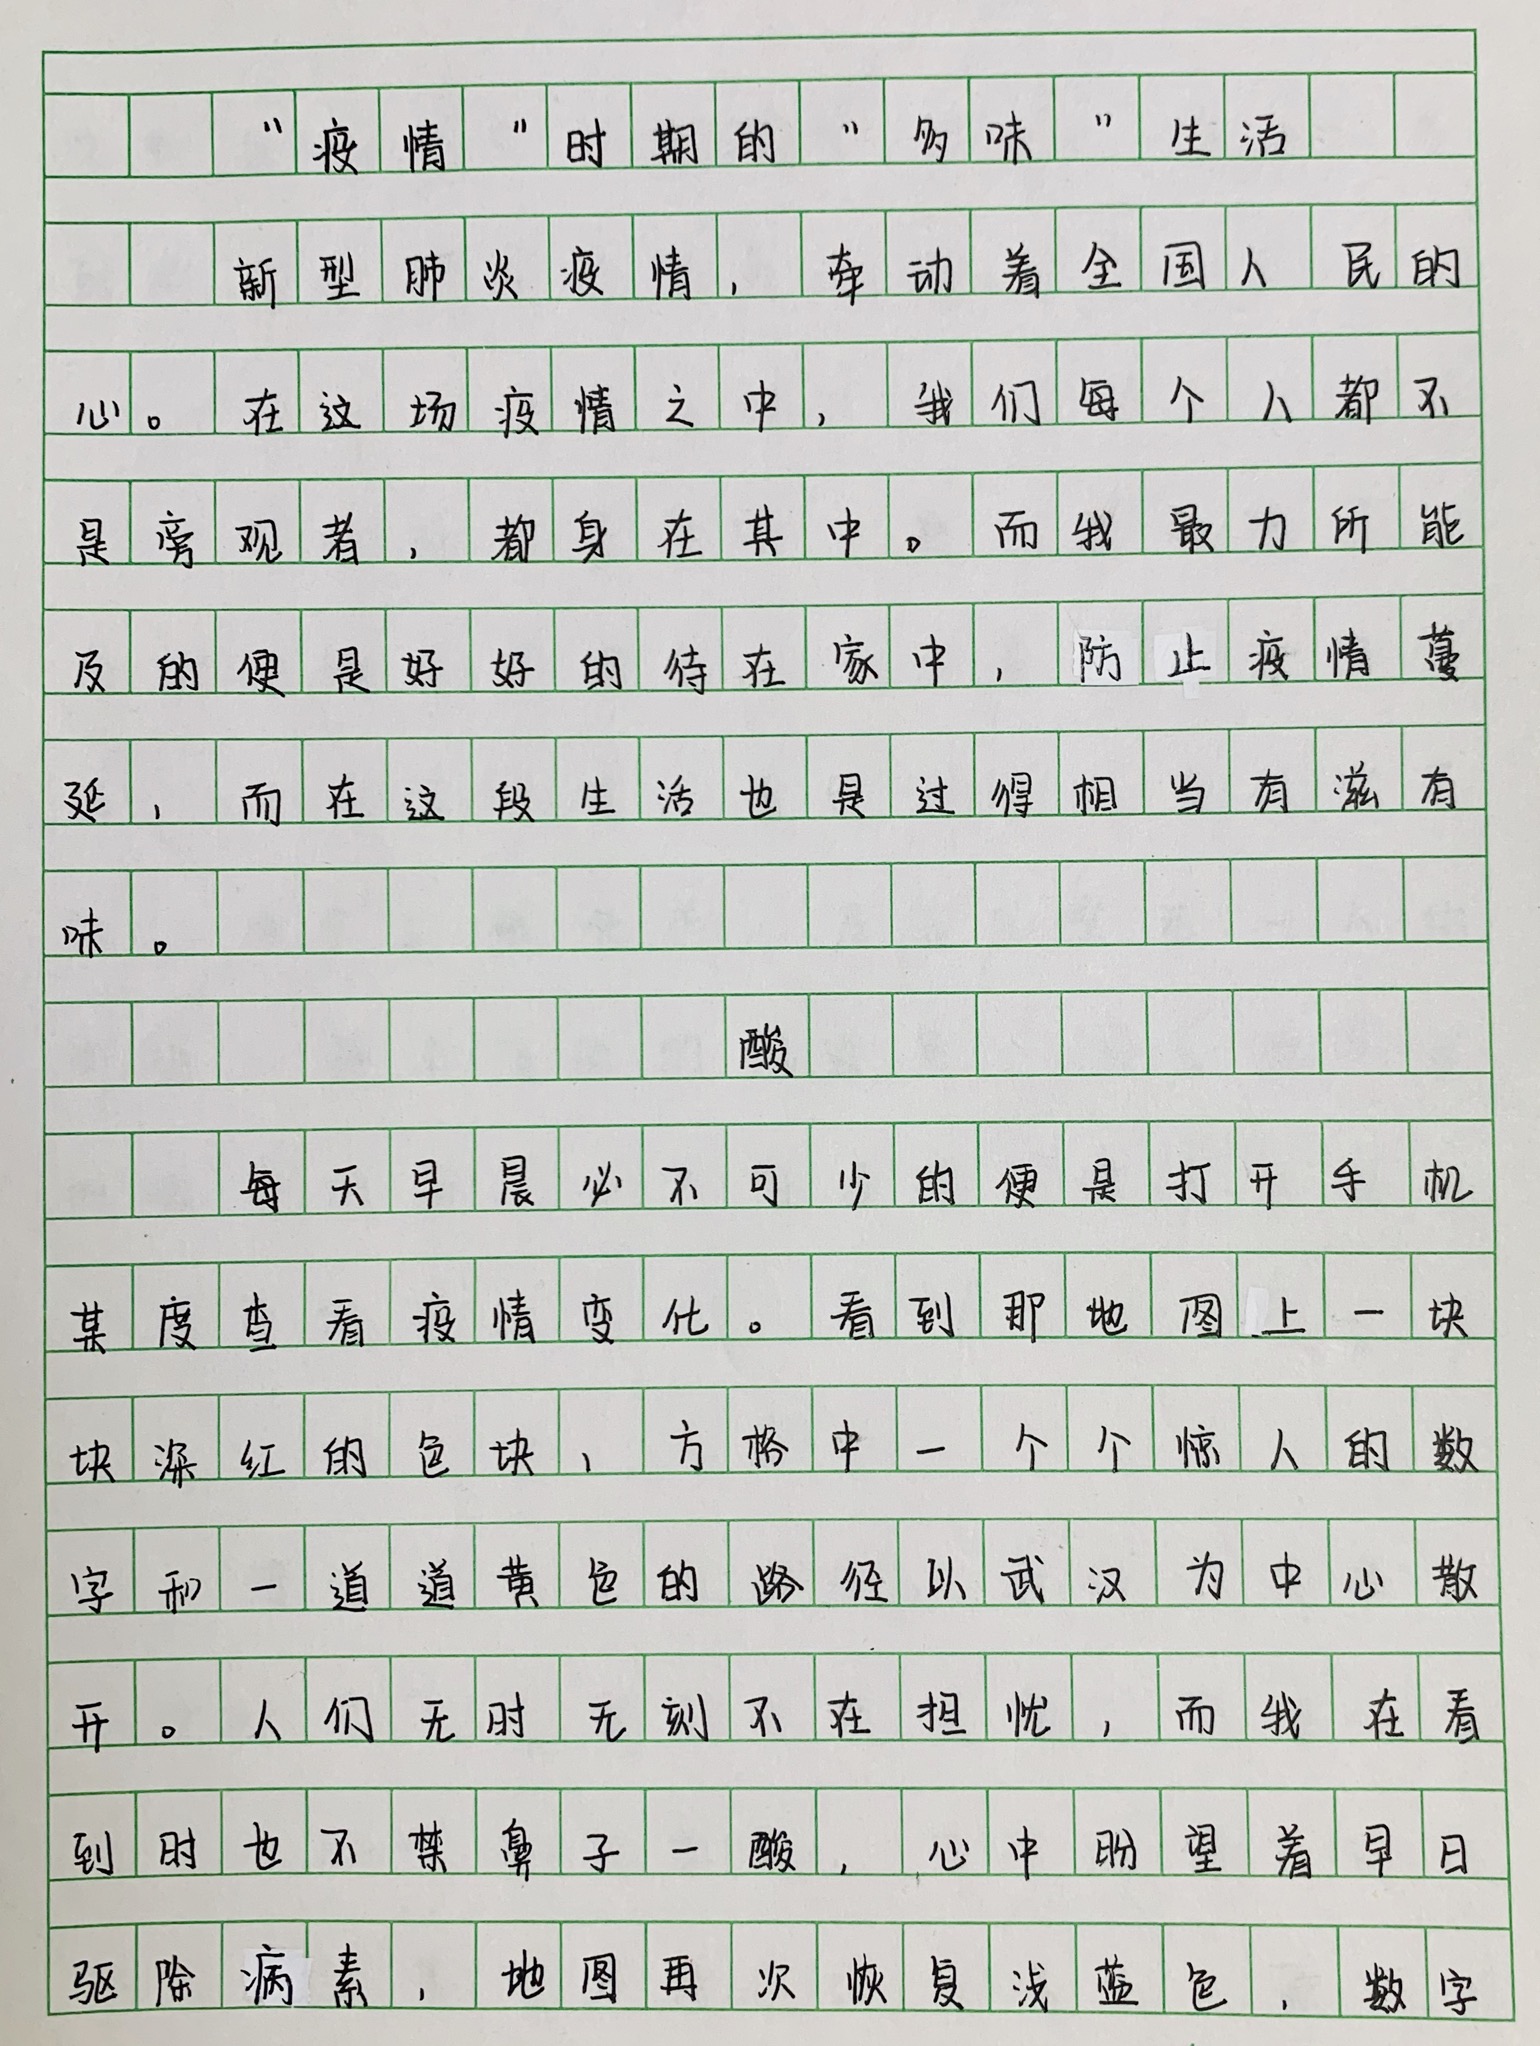 "疫情"时期的"多味"生活
新型肺炎疫情，牵动着全国人民的
心。在这场疫情之中，我们每个人都不
是旁观者，都身在其中。而我最力所能
及的便是好好的待在家中，防止疫情蔓
延，而在这段生活也是过得相当有滋有
味。
酸
每天早晨必不可少的便是打开手机
某度查看疫情变化。看到那地图上一块
块深红的色块，方格中一个个惊人的数
字和一道道黄色的路径以武汉为中心散
开。人们无时无刻不在担忧，而我在看
到时也不禁鼻子一酸，心中盼望着早日
驱除病素，地图再次恢复浅蓝色，数字